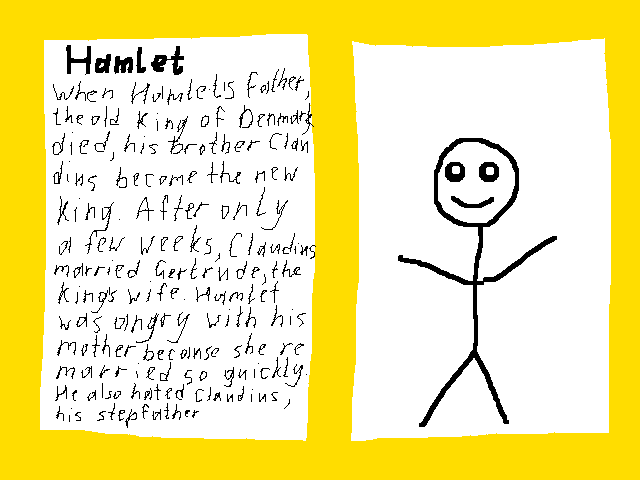 Hamlet
When Hamlet's father,
the old King of Denmark
died, his brother Clau
dius become the new
King. After only
a few weeks, Claudius
married Gertrude, the
King's wife. Hamlet
was angry with his
mother because she re
married so quickly.
He also hated Claudius,
his stepfather